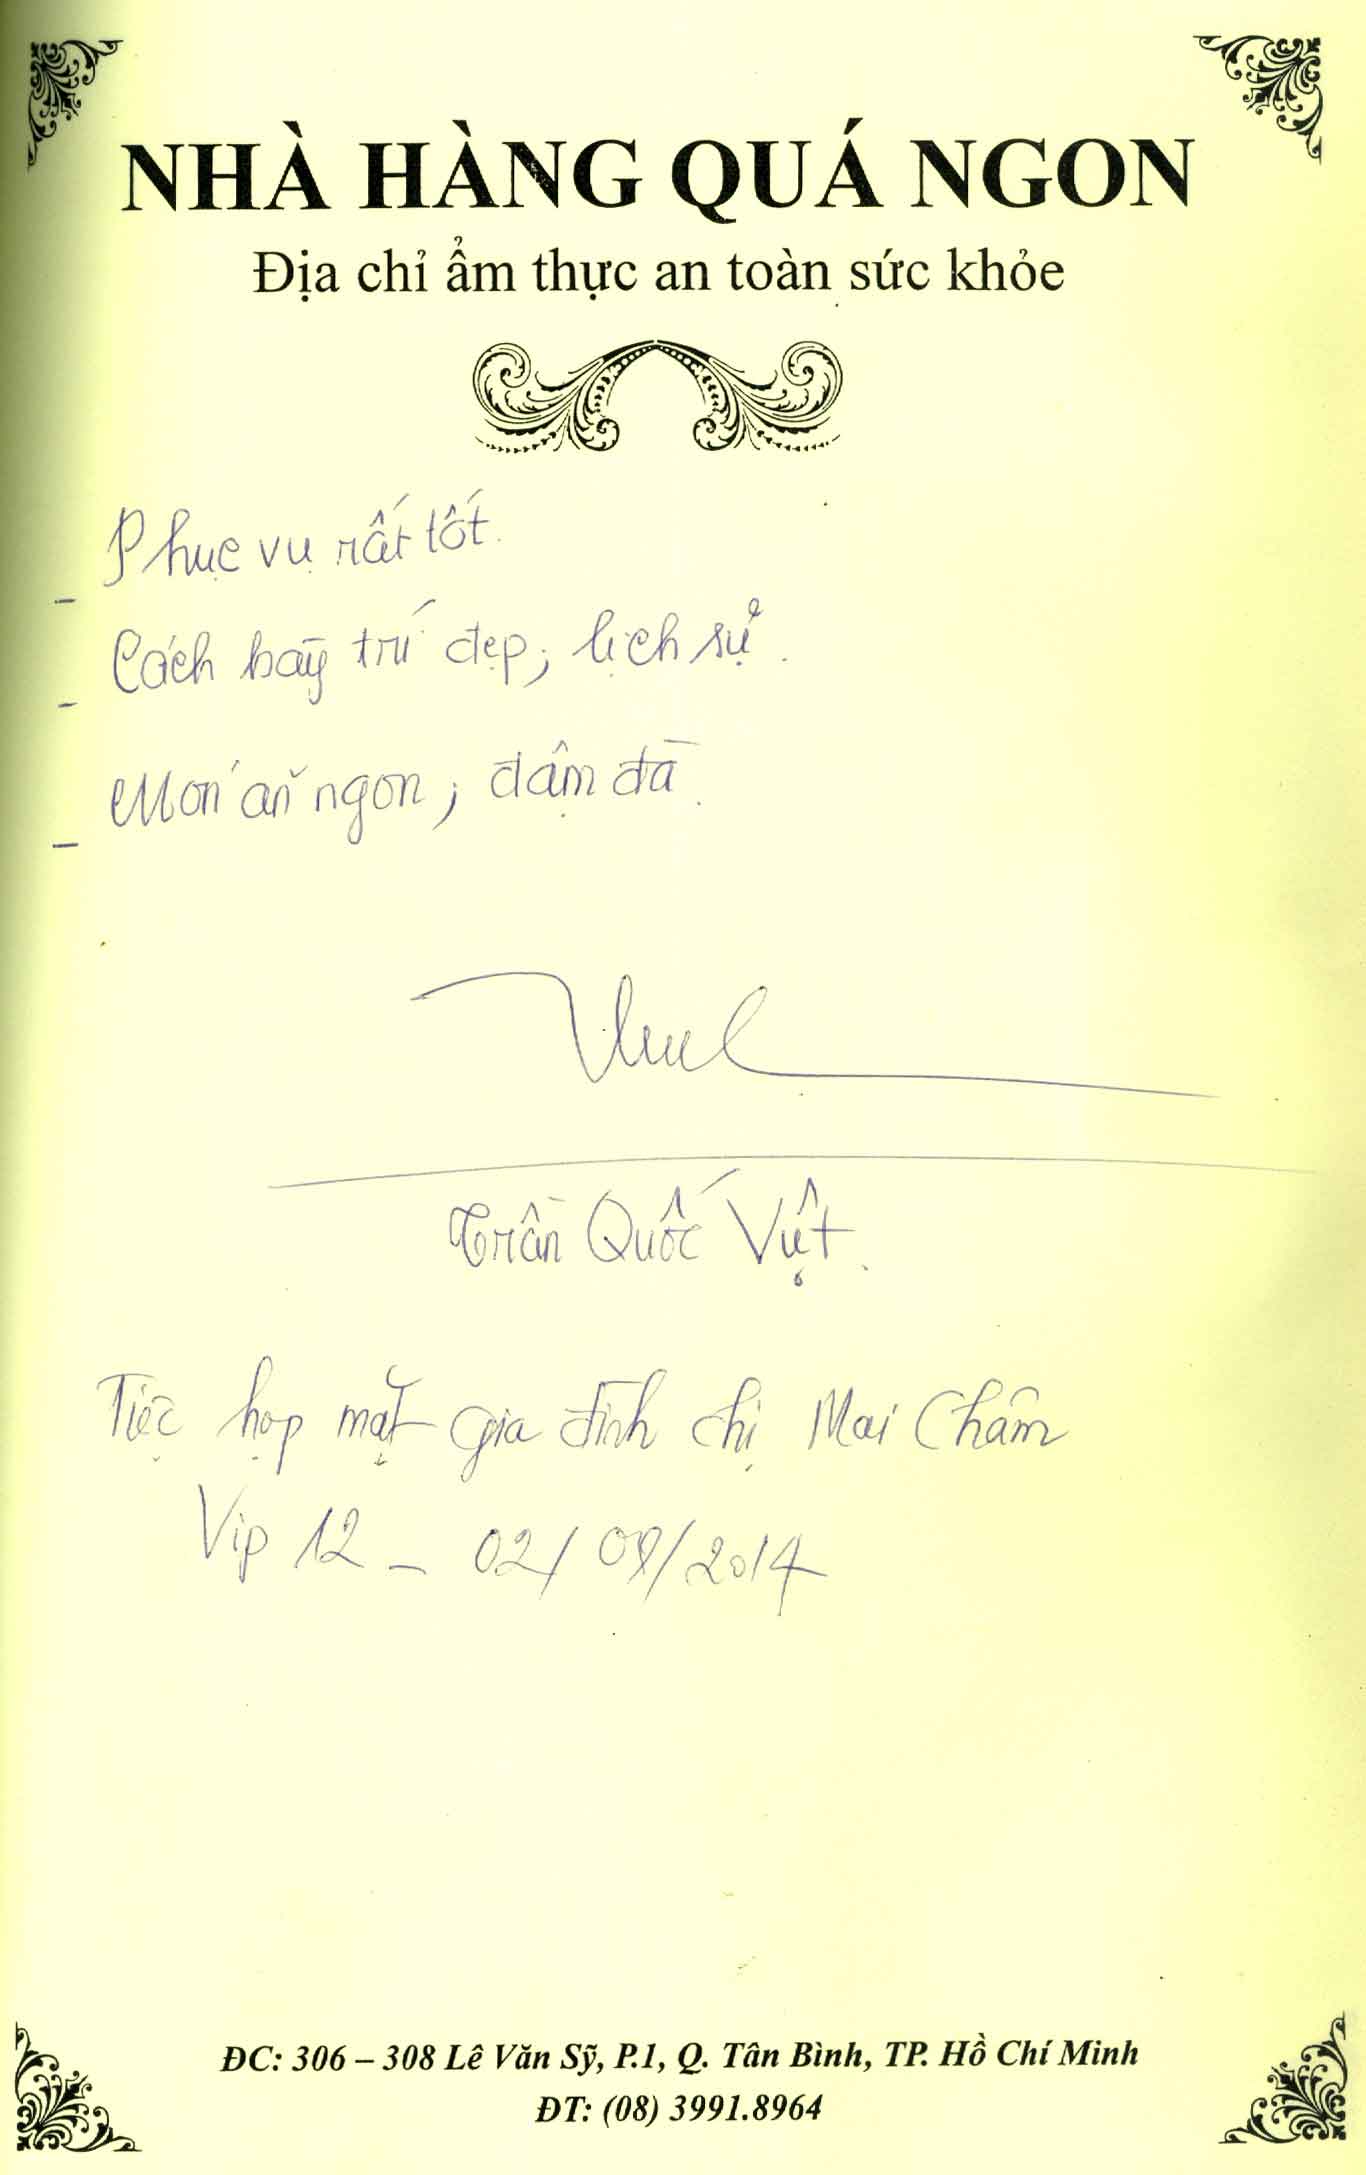 NHÀ HÀNG QUÁ NGON
Địa chỉ ẩm thực an toàn sức khỏe
- Phục vụ rất tốt.
- Cách bày trí đẹp, lịch sự.
- Món ăn ngon, đậm đà.
Trần Quốc Việt.
Tiệc họp mặt gia đình chị Mai Châm
Vip 12 - 02/09/2014
ĐC: 306 – 308 Lê Văn Sỹ, P.1, Q. Tân Bình, TP. Hồ Chí Minh
ĐT: (08) 3991.8964